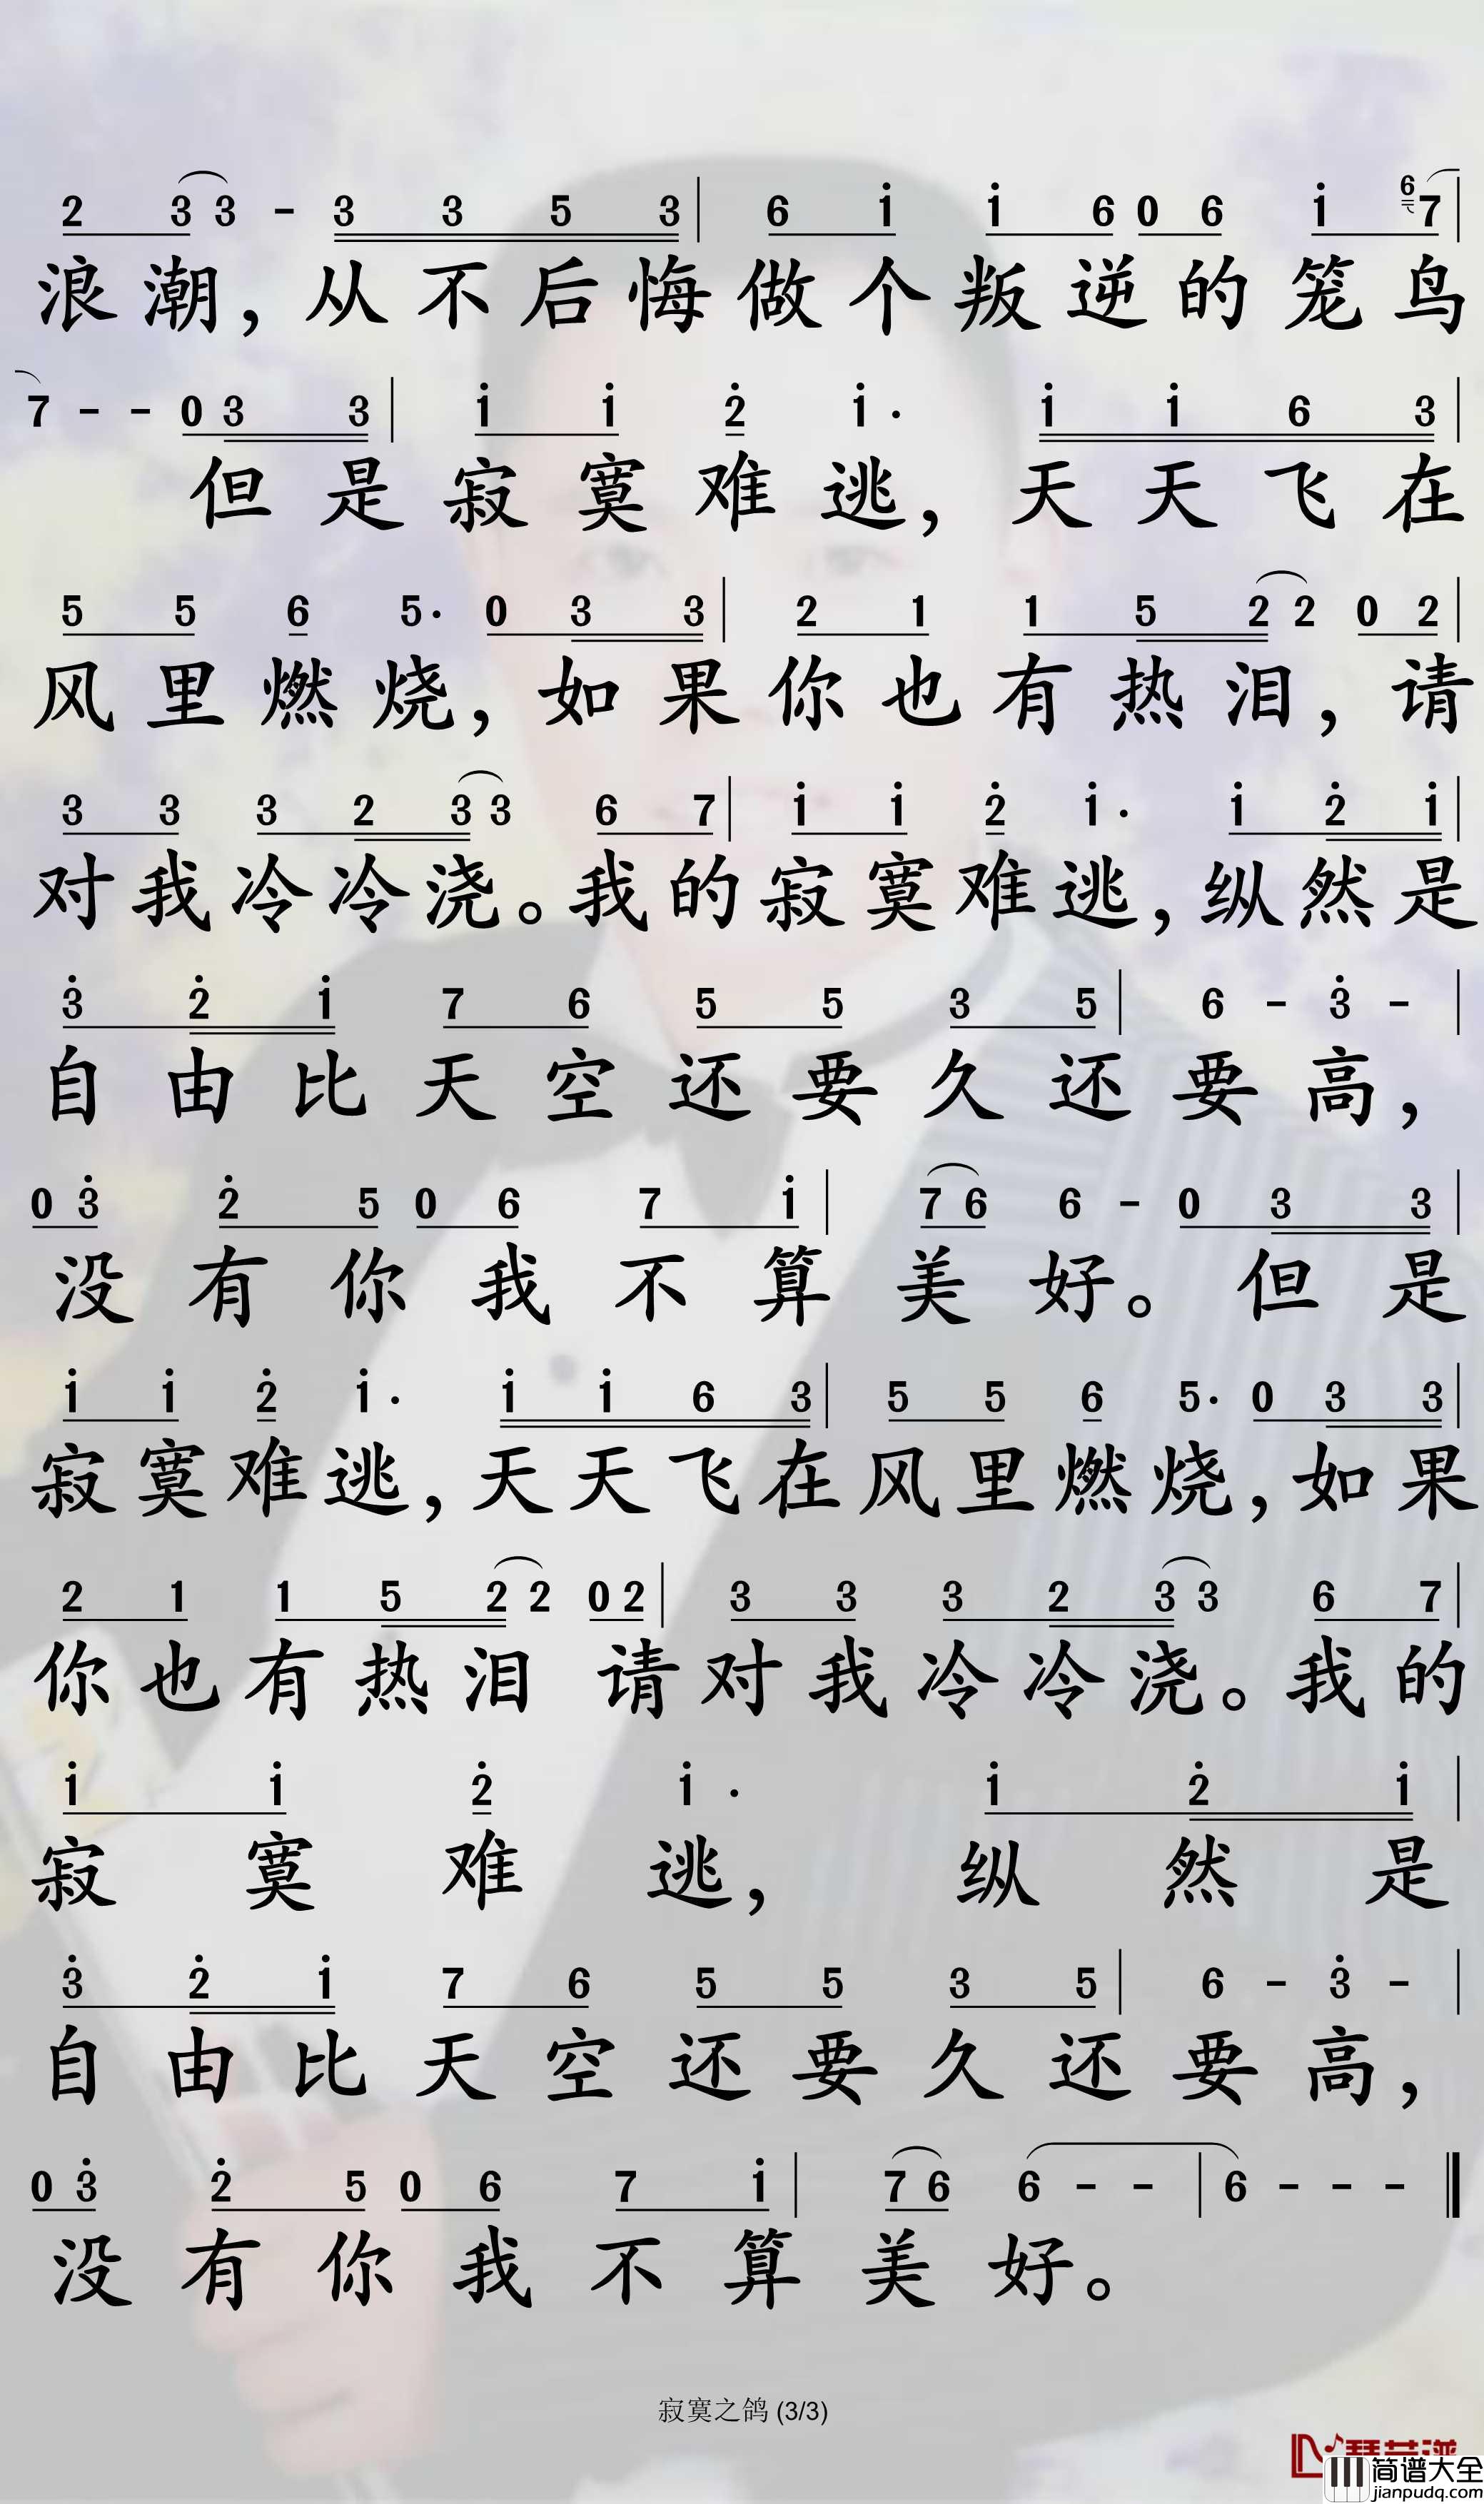 2 3 3 - 3 3 5 3 | 6 i i 6 0 6 i 6 7 |
浪潮，从不后悔做个叛逆的笼鸟
7 - - 0 3 3 | i i 2 i · i i 6 3 |
但是寂寞难逃，天天飞在
5 5 6 5· 0 3 3 | 2 1 1 5 2 2 0 2 |
风里燃烧，如果你也有热泪，请
3 3 3 2 3 3 6 7 | i i 2 i · i 2 i |
对我冷冷浇。我的寂寞难逃，纵然是
3 2 i 7 6 5 5 3 5 | 6 - 3 - |
自由比天空还要久还要高，
0 3 2 5 0 6 7 i | 7 6 6 - 0 3 3 |
没有你我不算美好。但是
i i 2 i · i i 6 3 | 5 5 6 5· 0 3 3 |
寂寞难逃，天天飞在风里燃烧，如果
2 1 1 5 2 2 0 2 | 3 3 3 2 3 3 6 7 |
你也有热泪 请对我冷冷浇。我的
i i 2 i · i 2 i |
寂寞难逃，纵然是
3 2 i 7 6 5 5 3 5 | 6 - 3 - |
自由比天空还要久还要高，
0 3 2 5 0 6 7 i | 7 6 6 - - | 6 - - - ‖
没有你我不算美好。
寂寞之鸽 (3/3)
简谱大全
jianpudq.com